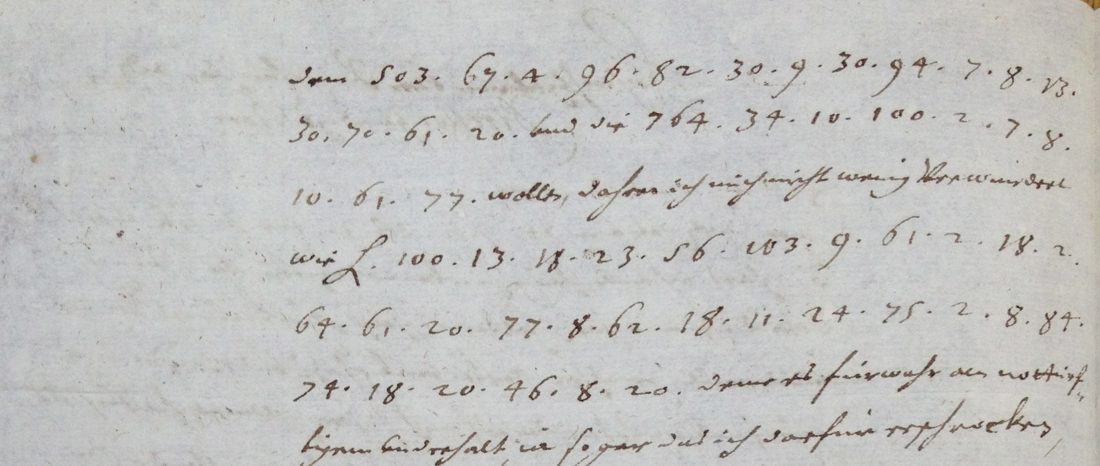 dem 503. 67. 4. 96. 82. 30. 9. 30. 94. 7. 8. 13.
30. 70. 61. 20. und die 764. 34. 10. 100. 2. 7. 8.
10. 61. 77. wollen, dahero ich mich nicht wenig Verwundert
wie H. 100. 13. 18. 23. 56. 103. 9. 61. 2. 18. 2.
64. 61. 20. 77. 8. 62. 18. 11. 24. 75. 2. 8. 84.
74. 18. 20. 46. 8. 20. deme es fürwahr an nottürf-
tigem underhalt, ia so gar das ich darfür erschrocken,